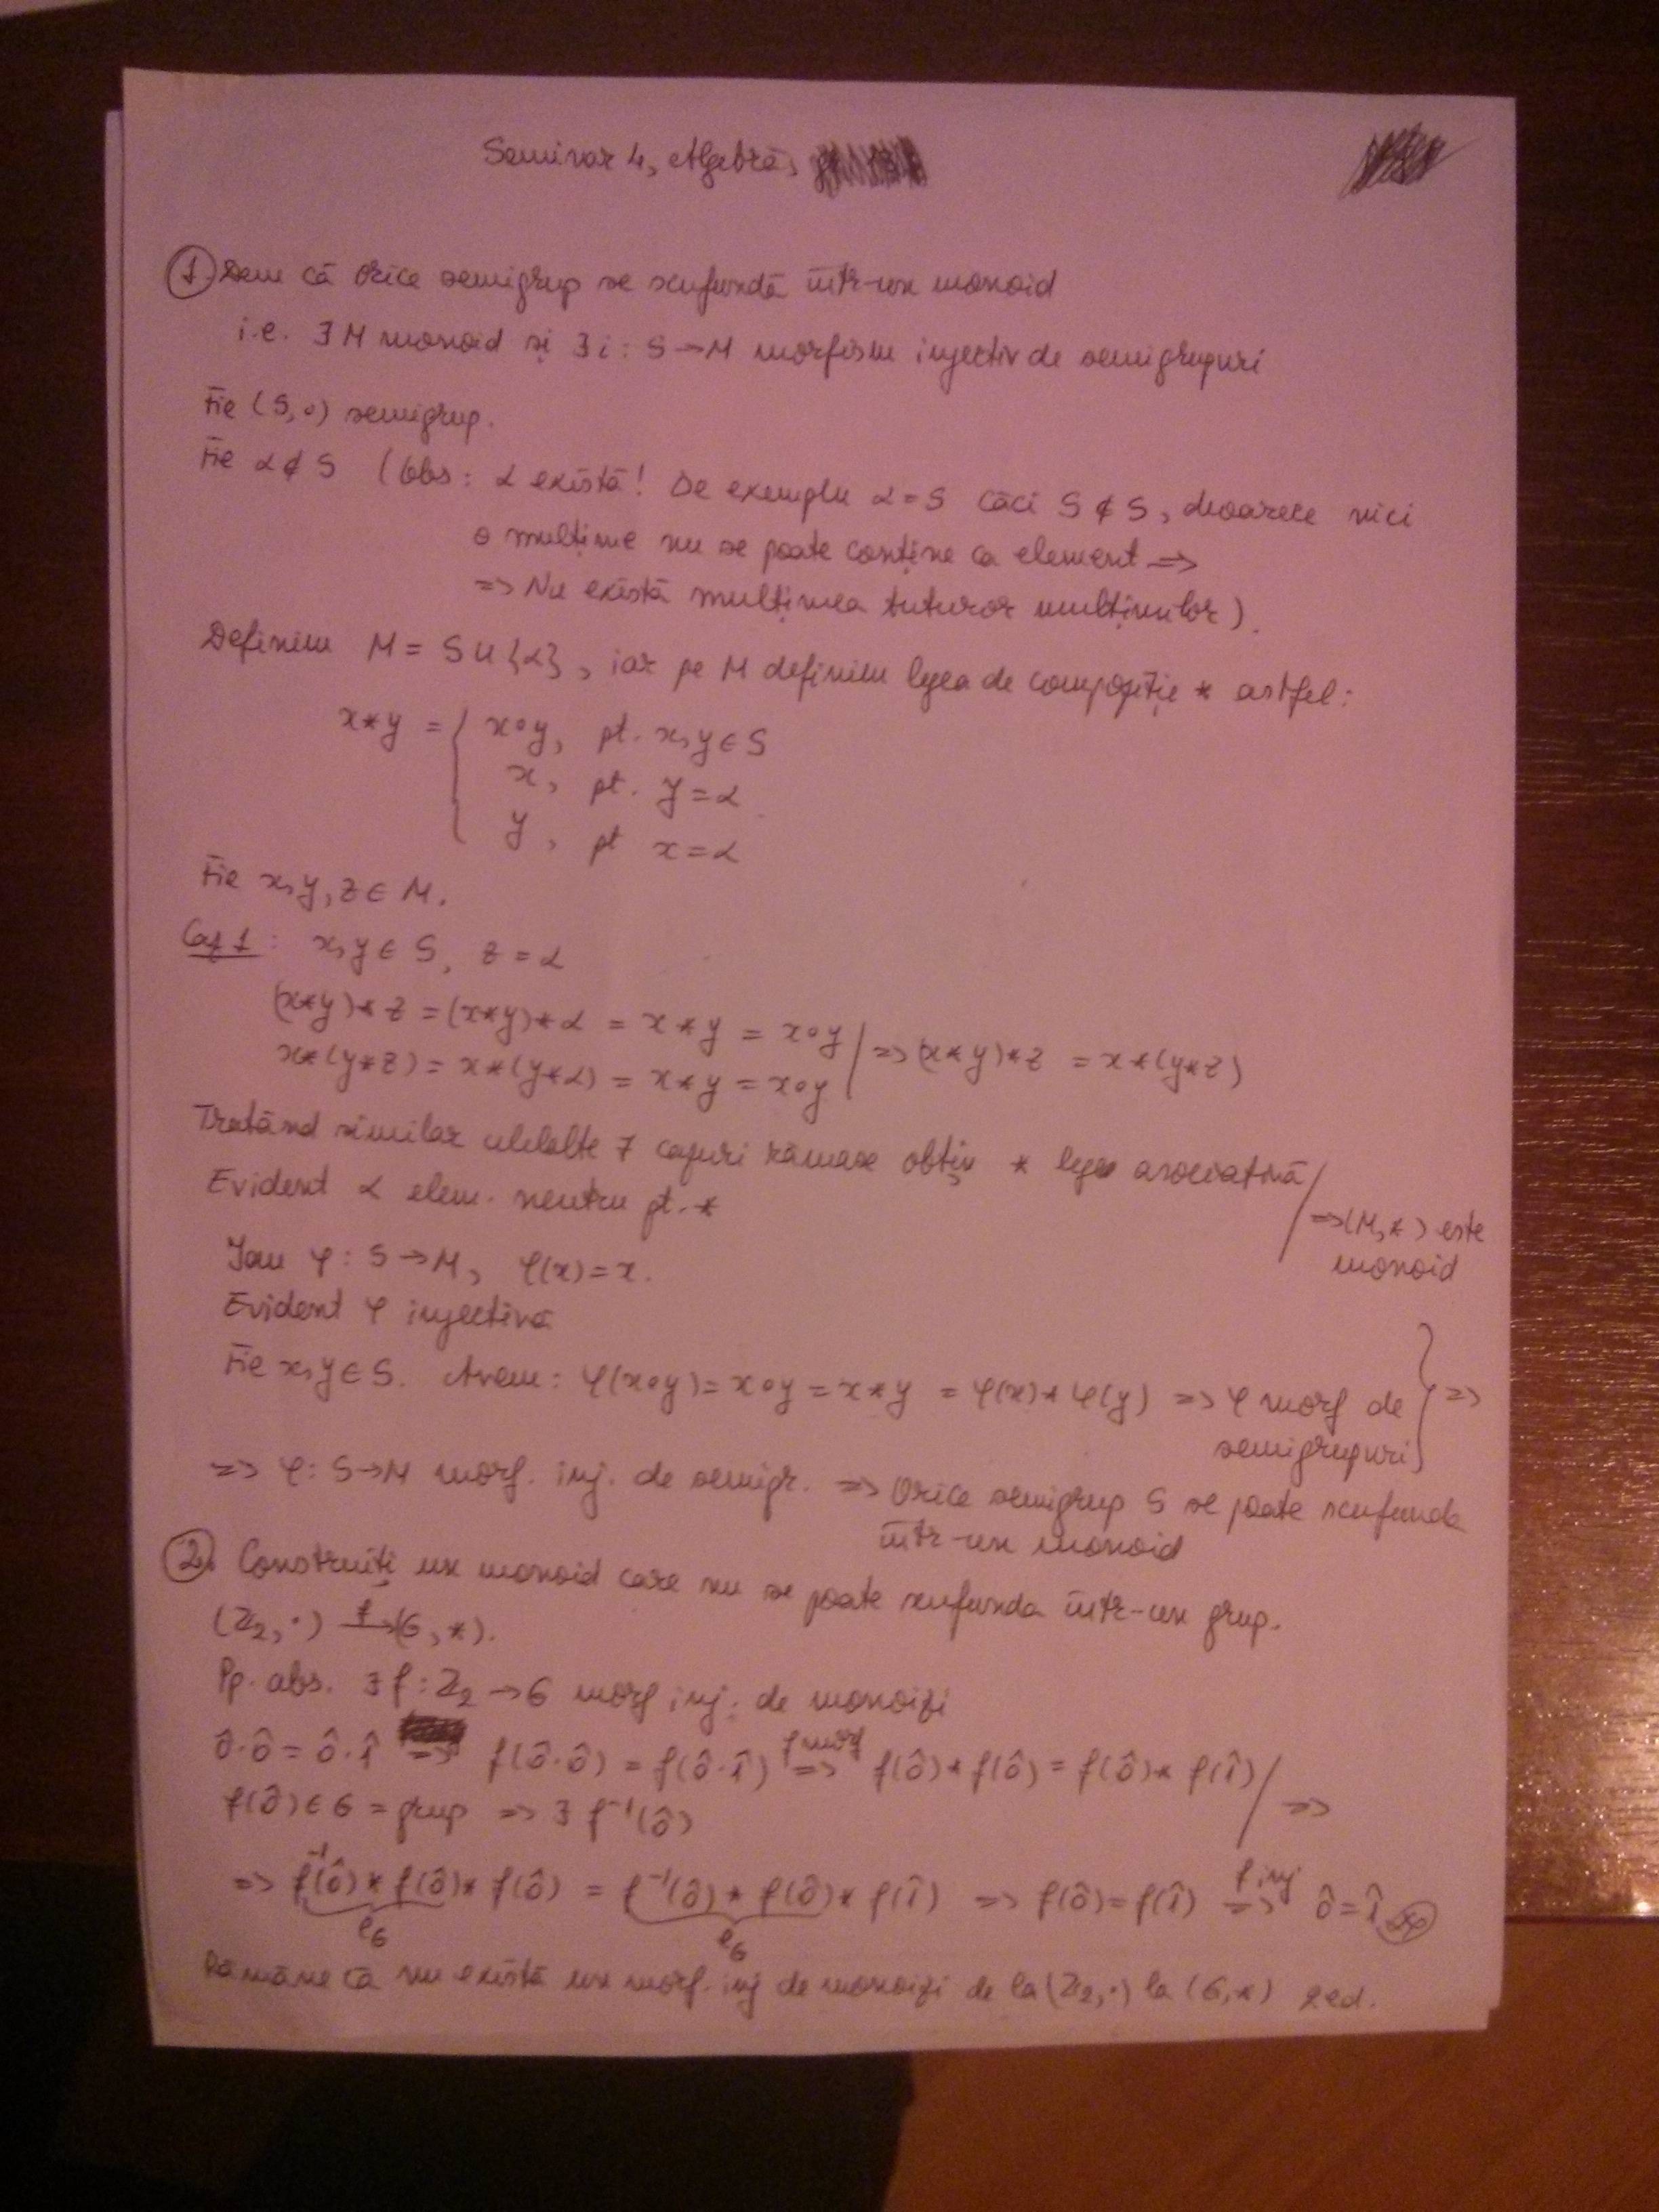 Seminar 4, Algebră,
1. Dem că orice semigrup se scufundă într-un monoid
i.e. ∃ M monoid și ∃ i : S → M morfism injectiv de semigrupuri
Fie (S, ∘) semigrup.
Fie α ∉ S (Obs: α există! De exemplu α = S căci S ∉ S, deoarece nici
o mulțime nu se poate conține ca element =>
=> Nu există mulțimea tuturor mulțimilor).
Definim M = S ∪ {α}, iar pe M definim legea de compoziție * astfel:
x*y = { x∘y, pt. x,y ∈ S
x, pt. y = α
y, pt x = α
Fie x,y,z ∈ M.
Caz 1: x,y ∈ S, z = α
(x*y)*z = (x*y)*α = x*y = x∘y
x*(y*z) = x*(y*α) = x*y = x∘y / => (x*y)*z = x*(y*z)
Tratând similar celelalte 7 cazuri rămase obțin * lege asociativă
Evident α elem. neutru pt. * / => (M,*) este monoid
Iau φ : S → M, φ(x) = x.
Evident φ injectivă
Fie x,y ∈ S. Avem: φ(x∘y) = x∘y = x*y = φ(x)*φ(y) => φ morf de semigrupuri } =>
=> φ: S → M morf. inj. de semigr. => Orice semigrup S se poate scufunda
într-un monoid
2. Construiți un monoid care nu se poate scufunda într-un grup.
(ℤ₂, ·) →f (G, *).
Pp. abs. ∃ f : ℤ₂ → G morf inj. de monoizi
0̂·0̂ = 0̂·1̂ => f(0̂·0̂) = f(0̂·1̂) =>(f morf) f(0̂)*f(0̂) = f(0̂)*f(1̂)
f(0̂) ∈ G = grup => ∃ f⁻¹(0̂) / =>
=> f⁻¹(0̂)*f(0̂)*f(0̂) = f⁻¹(0̂)*f(0̂)*f(1̂) => f(0̂) = f(1̂) =>(f inj) 0̂ = 1̂
e_G e_G
Rămâne că nu există un morf. inj de monoizi de la (ℤ₂, ·) la (G, *) qed.